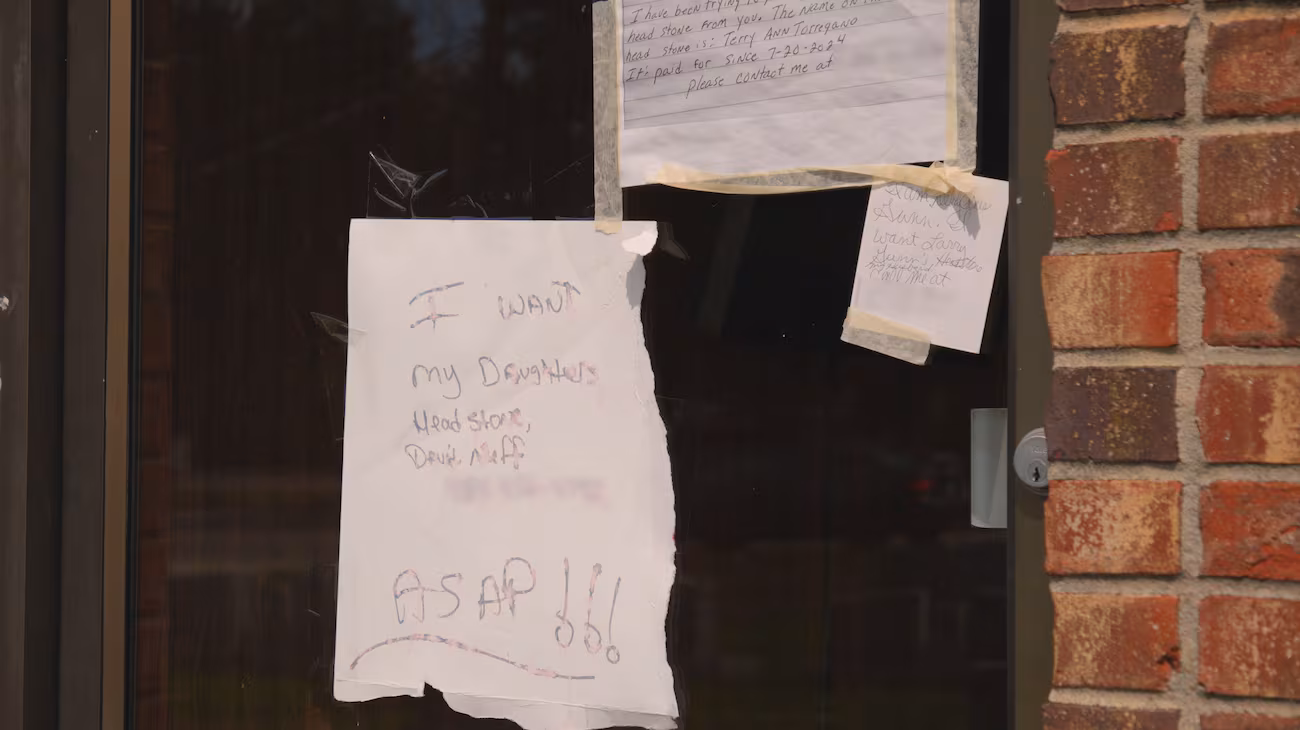 I have been trying to
head stone from you. The name on
head stone is: Terry Ann Torregano
It's paid for since 7-20-2024
please contact me at
Gunn.
want Larry
Gunn's
me at
I WANT
my Daughters
Head Stone,
Neff
ASAP!!!